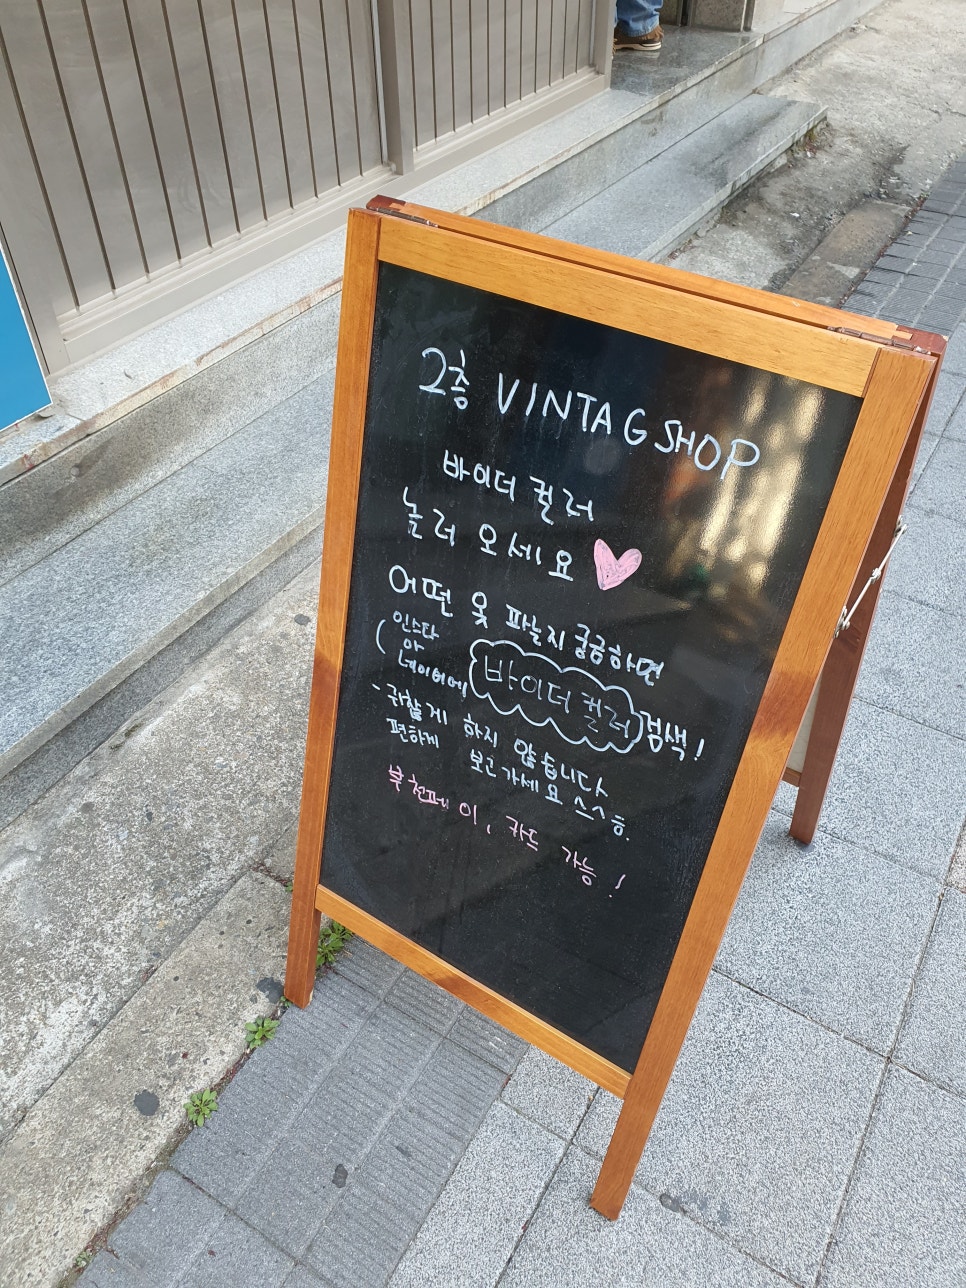 2층 VINTAG SHOP
바이더컬러
놀러 오세요
어떤 옷 파는지 궁금하면
(인스타
아
네이버에 바이더컬러 검색!
- 귀찮게 하지 않습니다
편하게 보고가세요 ㅅ^ㅎ.
부천페이, 카드 가능!